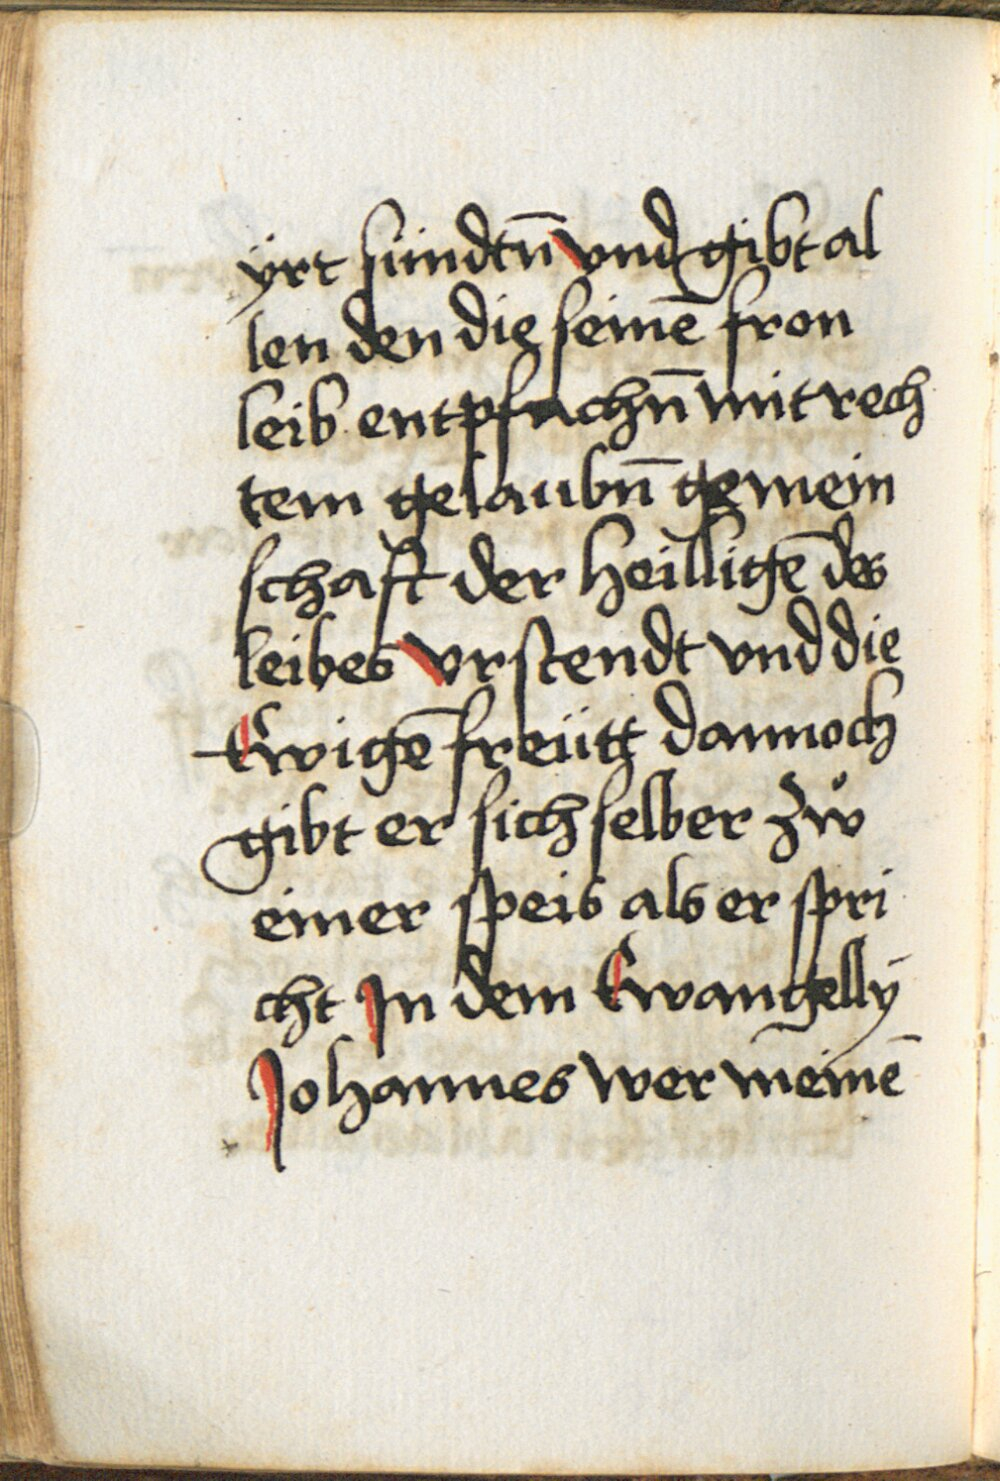 ÿrt sündtn̄ vnd gibt al
len den die seinē fron
leib entpfachn̄ mit rech
tem gelaubn̄ gemein
schaft der heilligē des
leibes vrstendt vnd die
Ewigē freütt dannoch
gibt er sich selber zů
einer speis als er spri
cht In dem Ewangellÿ
Johannes wer meinē